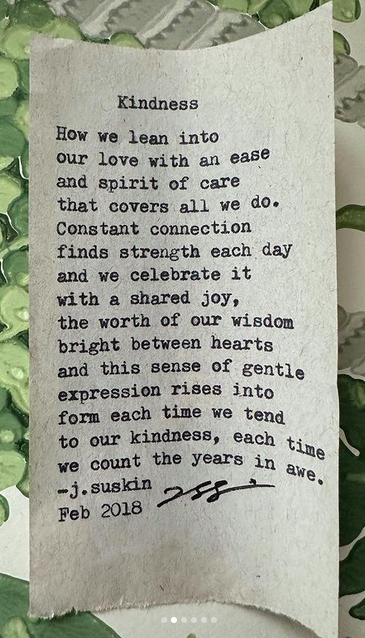 Kindness
How we lean into
our love with an ease
and spirit of care
that covers all we do.
Constant connection
finds strength each day
and we celebrate it
with a shared joy,
the worth of our wisdom
bright between hearts
and this sense of gentle
expression rises into
form each time we tend
to our kindness, each time
we count the years in awe.
-j.suskin
Feb 2018